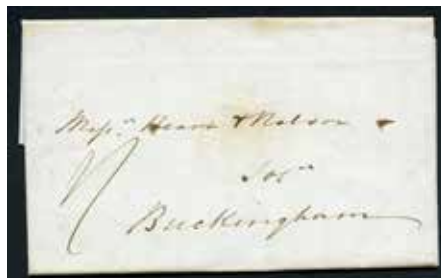 Messrs Hearn & Nelson
Solrs
Buckingham